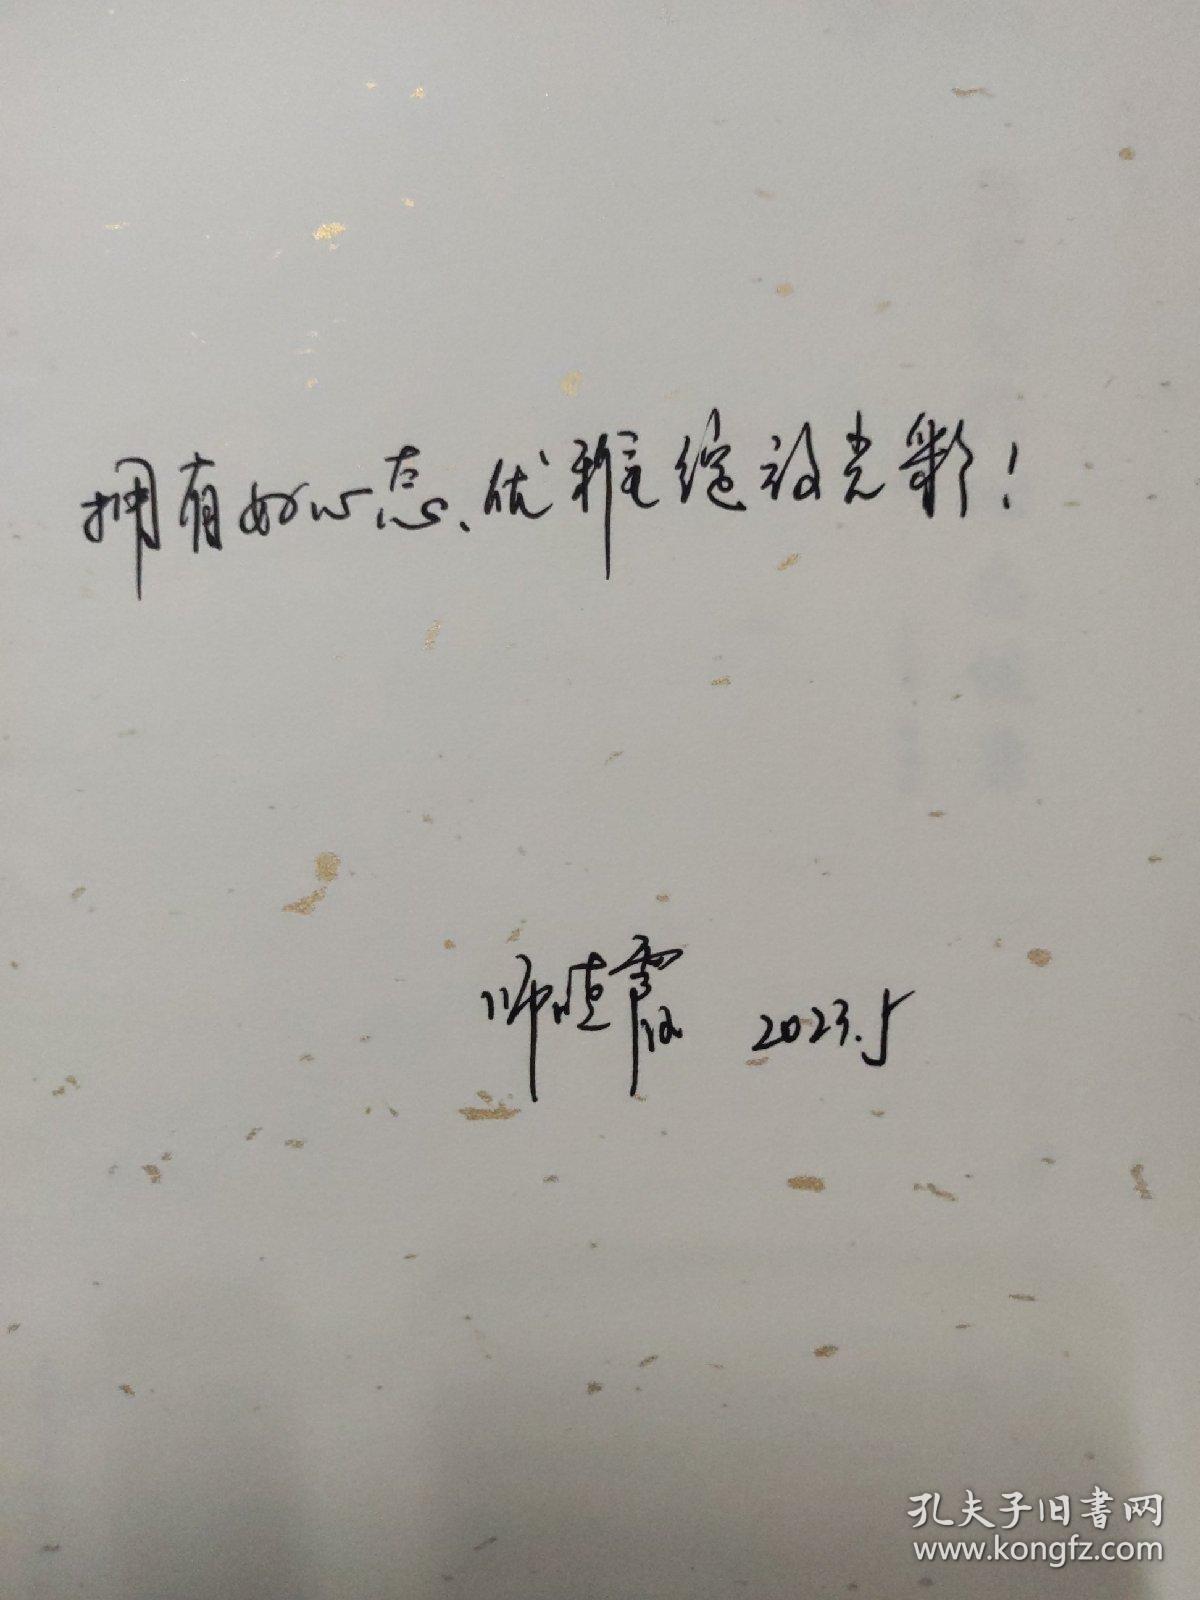 拥有好心态、优雅绽放光彩！
师晓霞 2023.5
孔夫子旧书网
www.kongfz.com